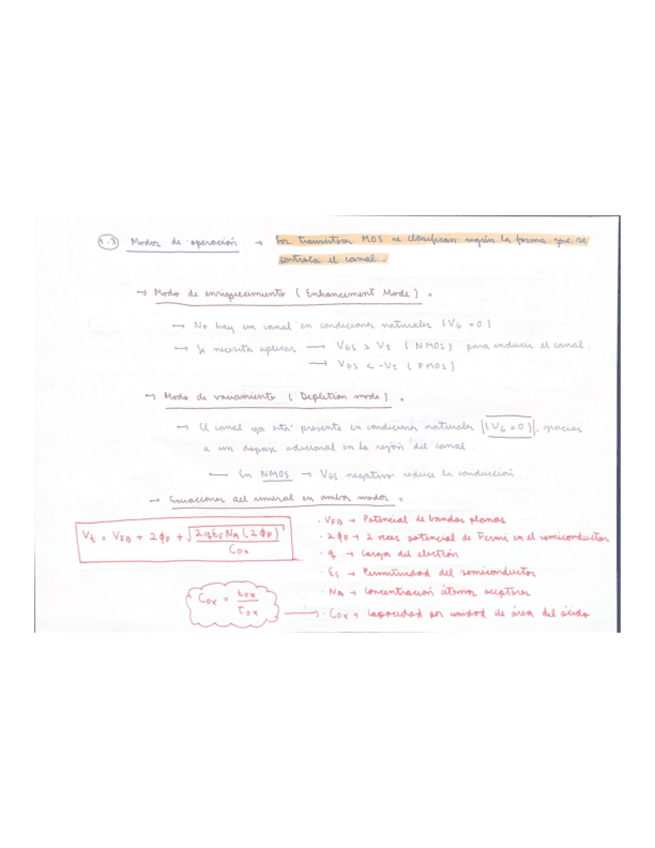 1.3) Modos de operación → Los transistores MOS se clasifican según la forma que se
controla el canal.
→ Modo de enriquecimiento (Enhancement Mode):
→ No hay un canal en condiciones naturales (VG = 0)
→ Se necesita aplicar → VGS > Vt (NMOS) para inducir el canal.
→ VGS < -Vt (PMOS)
→ Modo de vaciamiento (Depletion mode):
→ El canal ya está presente en condiciones naturales (VG = 0), gracias
a un dopaje adicional en la región del canal.
→ En NMOS → VGS negativo reduce la conducción
→ Ecuaciones del umbral en ambos modos:
Vt = VFB + 2ϕF + √(2qεsNA(2ϕF)) / Cox
· VFB → Potencial de bandas planas
· 2ϕF → 2 veces potencial de Fermi en el semiconductor
· q → Carga del electrón
· εs → Permitividad del semiconductor
· NA → Concentración átomos aceptores
Cox = εox / tox → · Cox → Capacidad por unidad de área del óxido